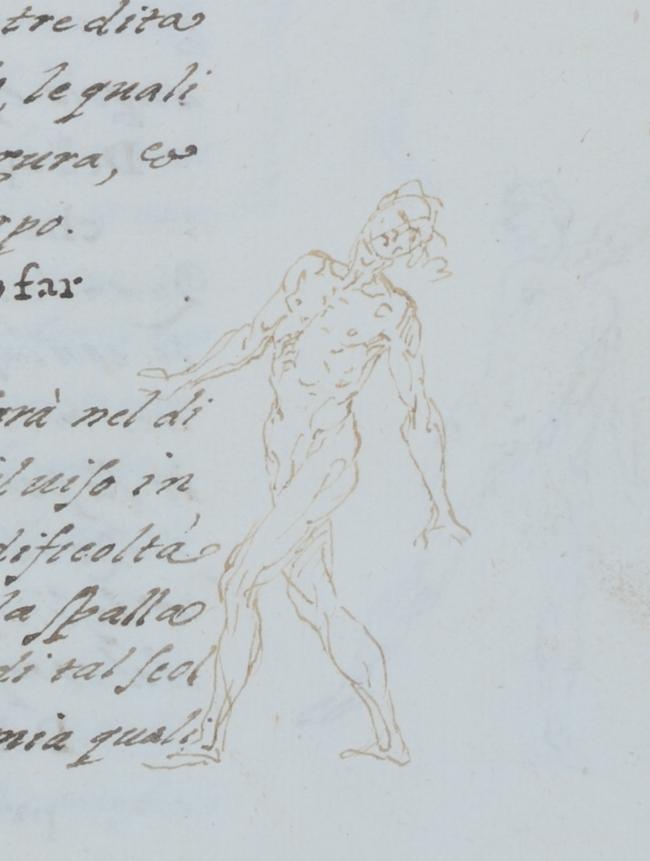 tre dita
le quali
gura, et
rpo.
far
arà nel di
il uiſo in
dificoltà
la ſpalla
di tal ſcol
mia quali